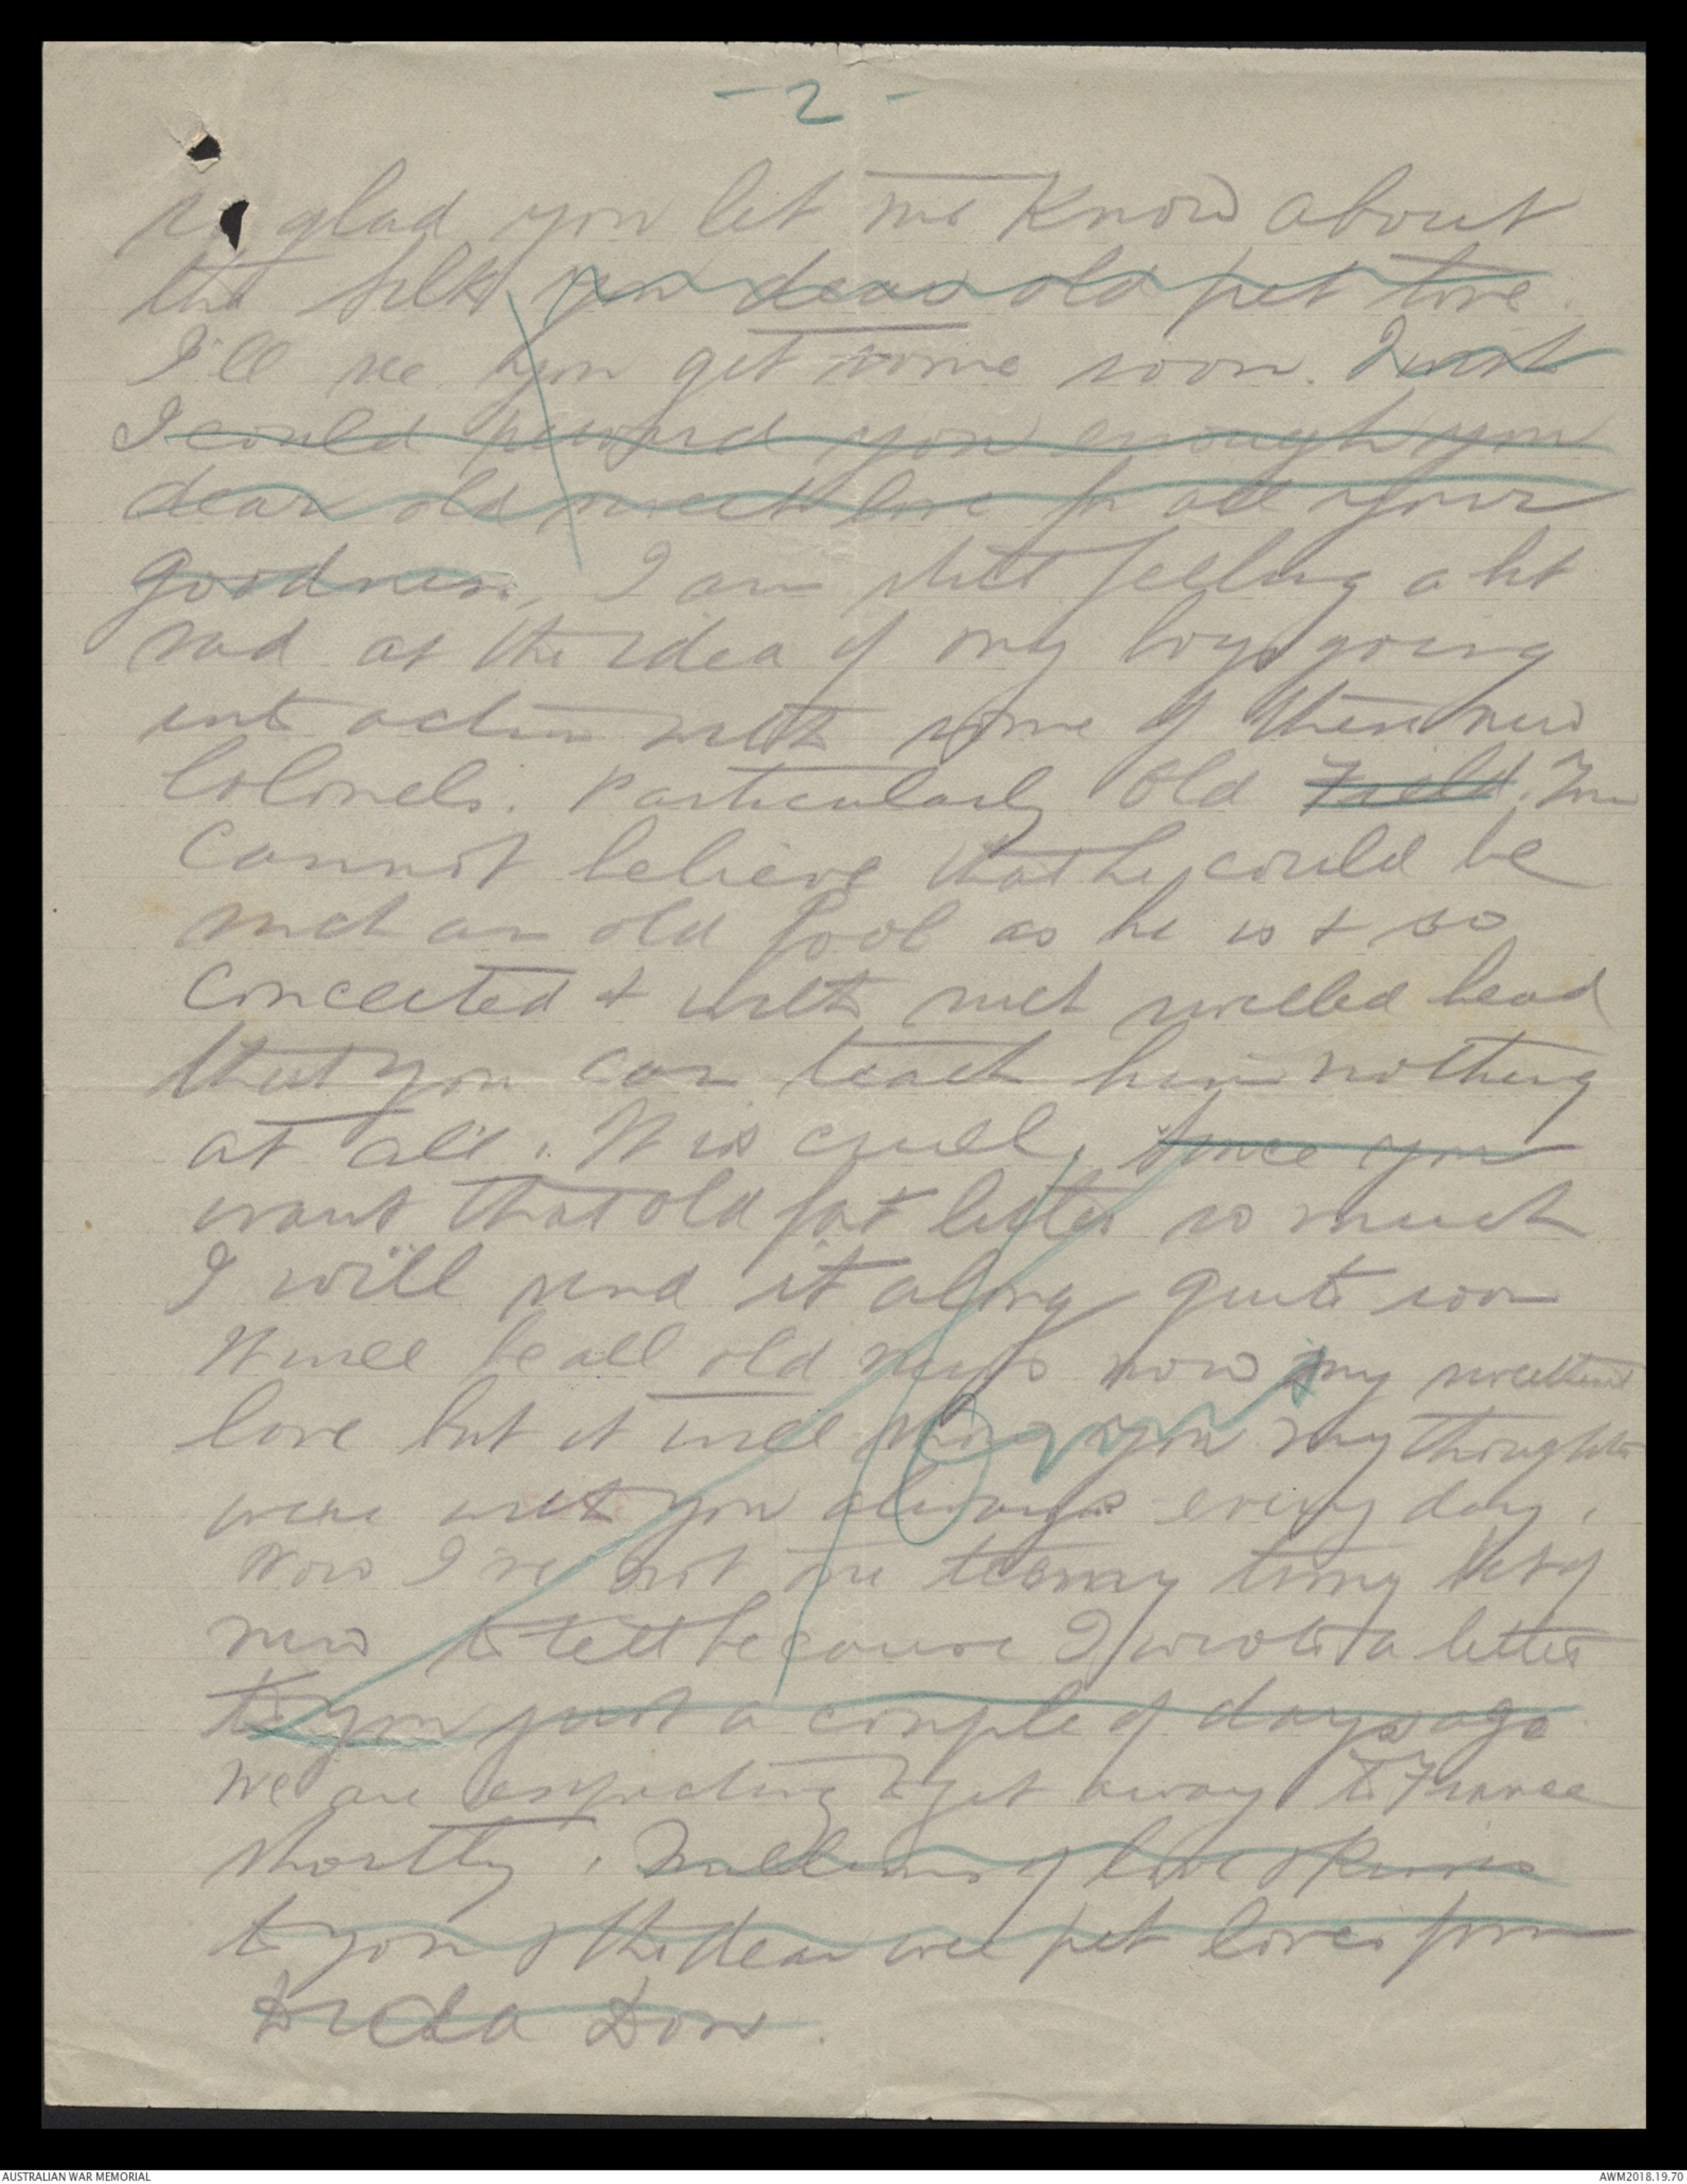 - 2 -
so glad you let me know about
the silk you dear old pet love.
I'll see you get some soon. I wish
I could reward you enough you
dear old sweet love for all your
goodness, I am still feeling a bit
sad at the idea of my boys going
into action with some of these new
Colonels. Particularly Old Field. You
cannot believe that he could be
such an old fool as he is & so
conceited & with such swelled head
that you can teach him nothing
at all. It is cruel. Since you
want that old fat letter so much
I will send it along quite soon
It will be all old news now my sweetheart
love but it will show you my thoughts
were with you always every day.
Now I've not one teeny tiny bit of
news to tell because I wrote a letter
to you just a couple of days ago
We are expecting to get away to France
shortly. Millions of love & kisses
to you & the dear wee pet loves from
Dida Don.
AUSTRALIAN WAR MEMORIAL
AWM2018.19.70